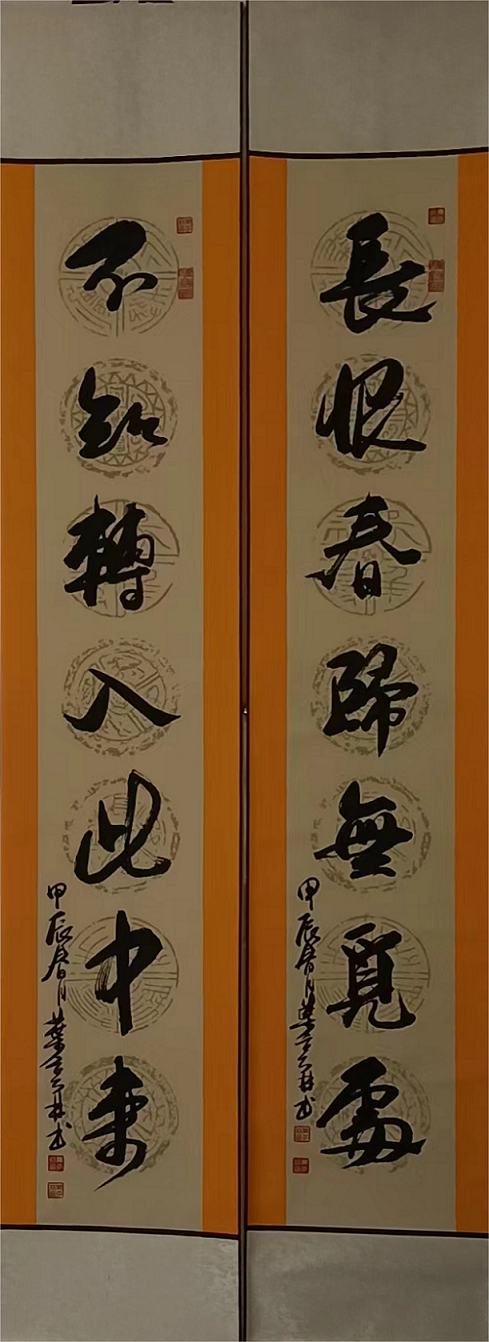 長恨春歸無覓處
甲辰春月葉
不知轉入此中來
甲辰春月葉